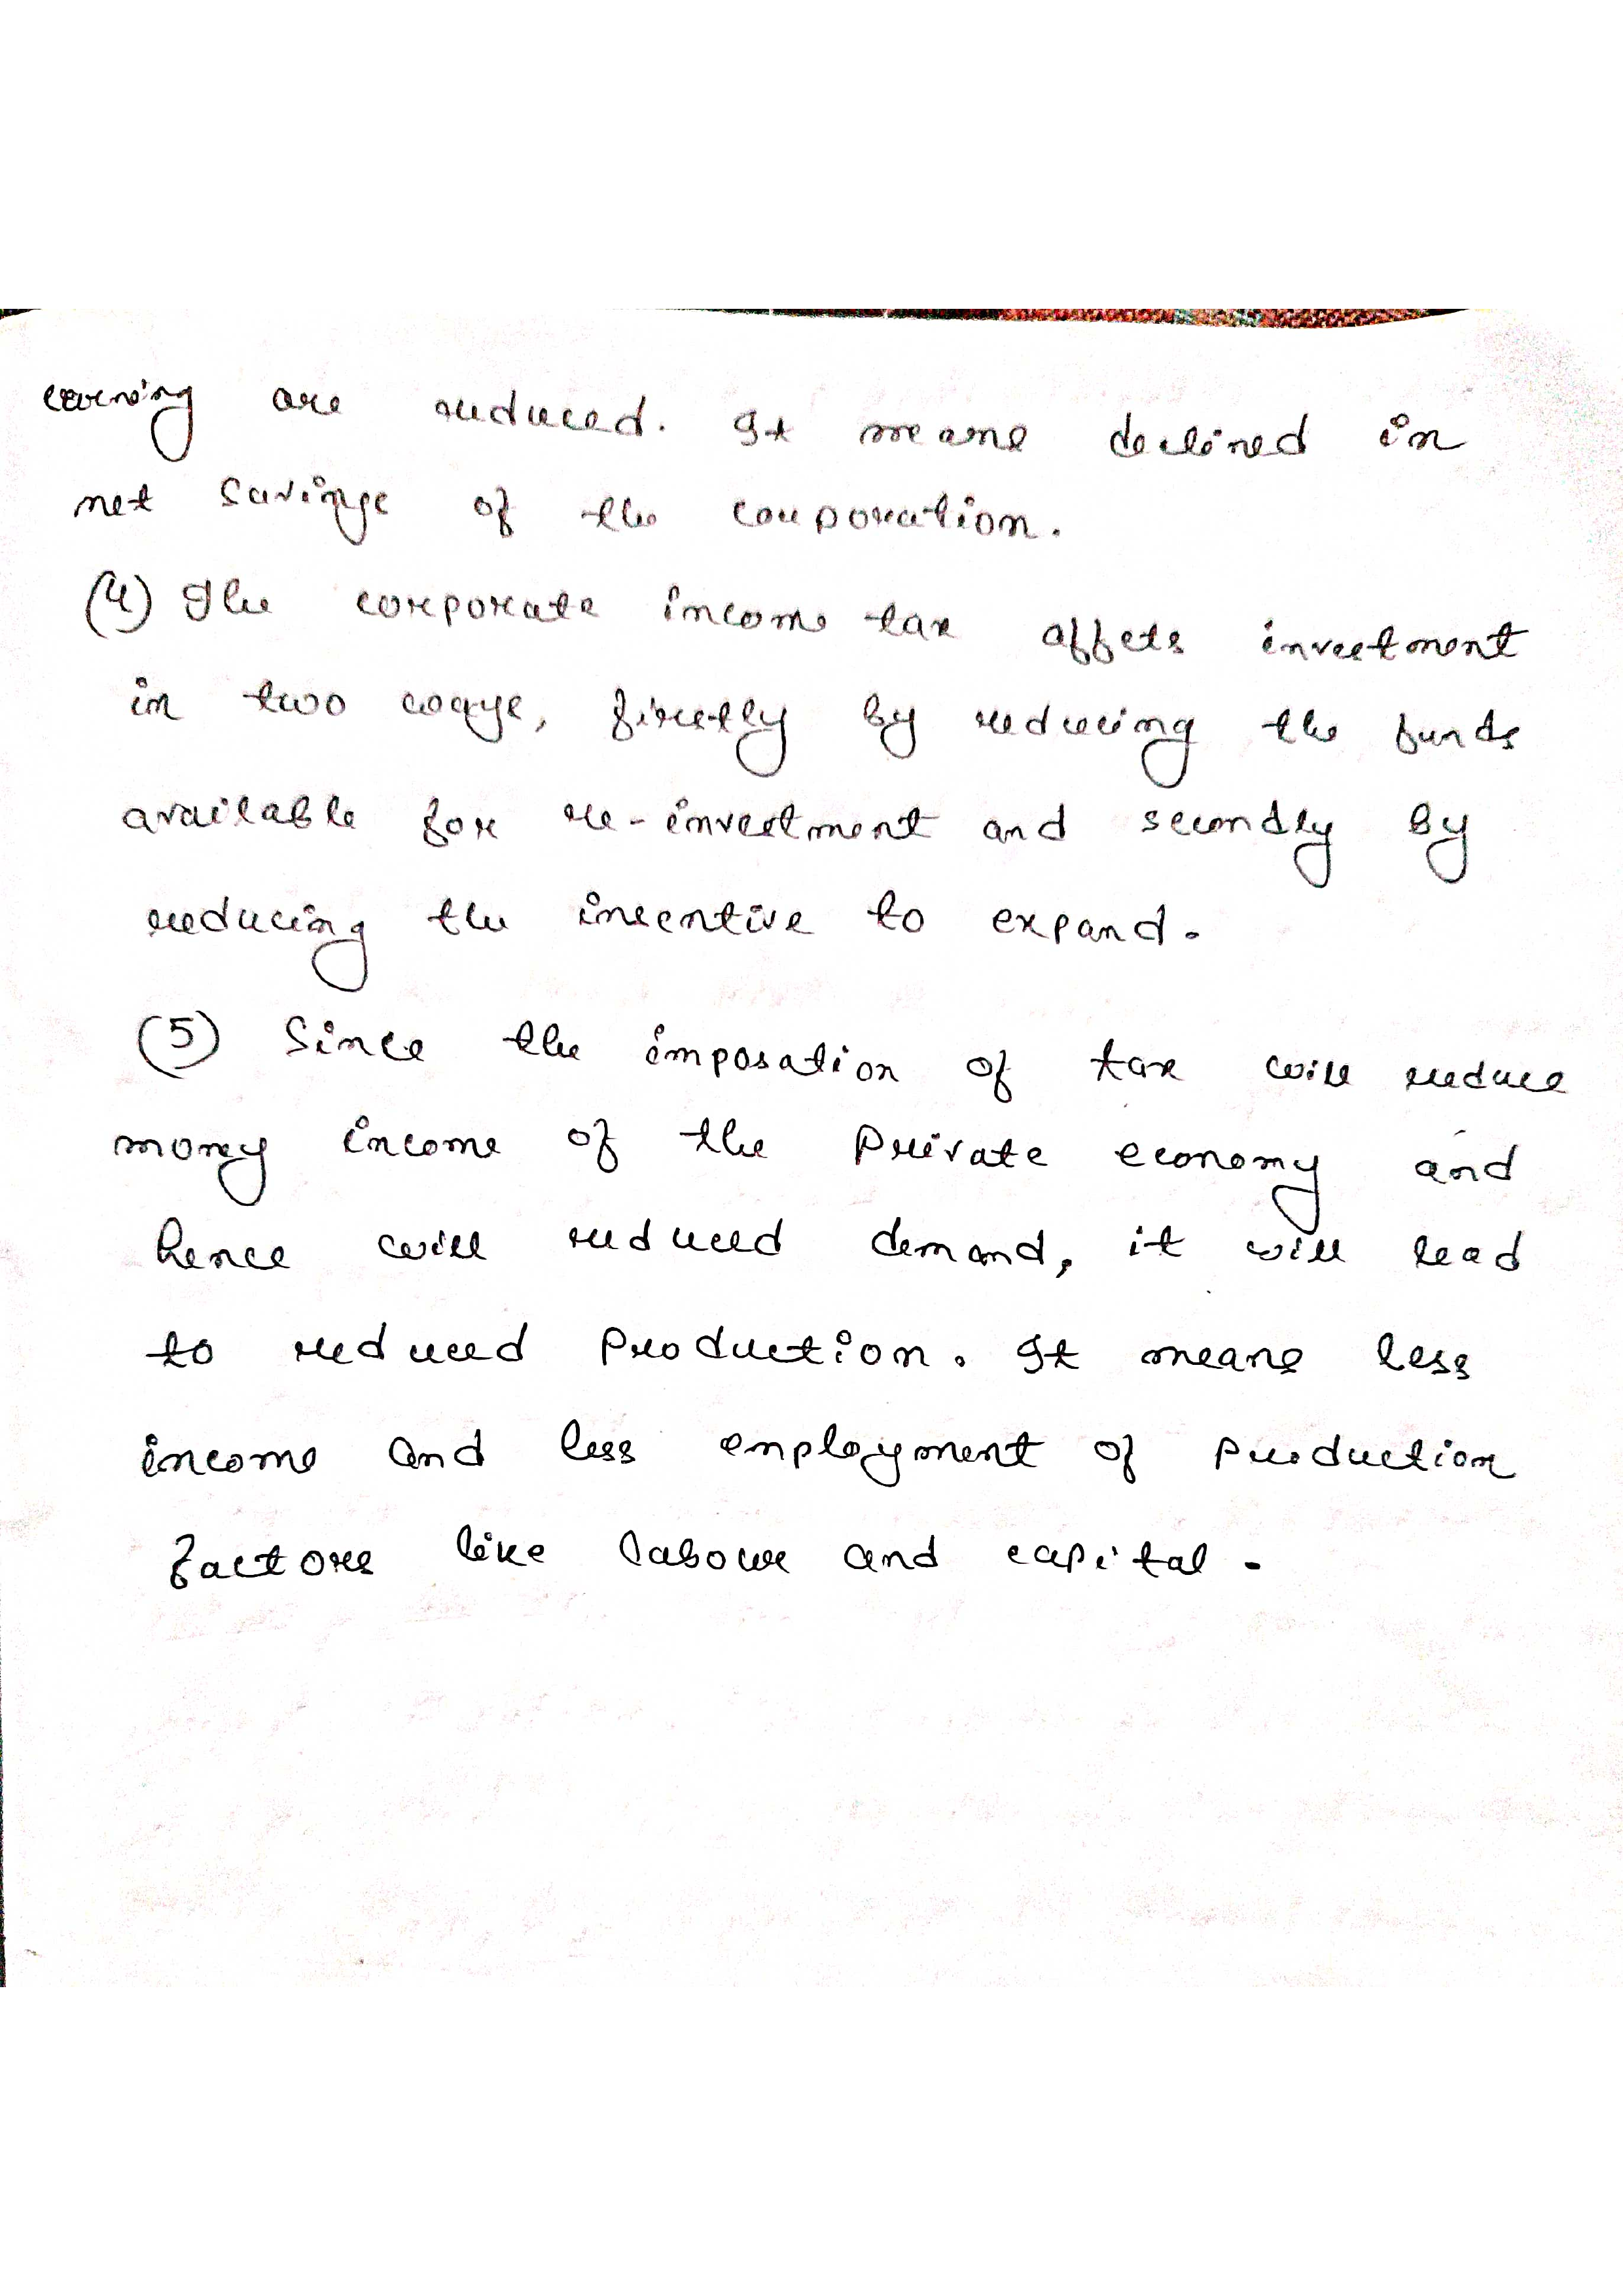 earning are reduced. It means declined in
net savings of the corporation.
(4) The corporate income tax affets investment
in two ways, firstly by reducing the funds
available for re-investment and secondly by
reducing the insentive to expand.
(5) Since the imposation of tax will reduce
money income of the private economy and
hence will reduced demand, it will lead
to reduced production. It means less
income and less employment of production
factors like labour and capital.